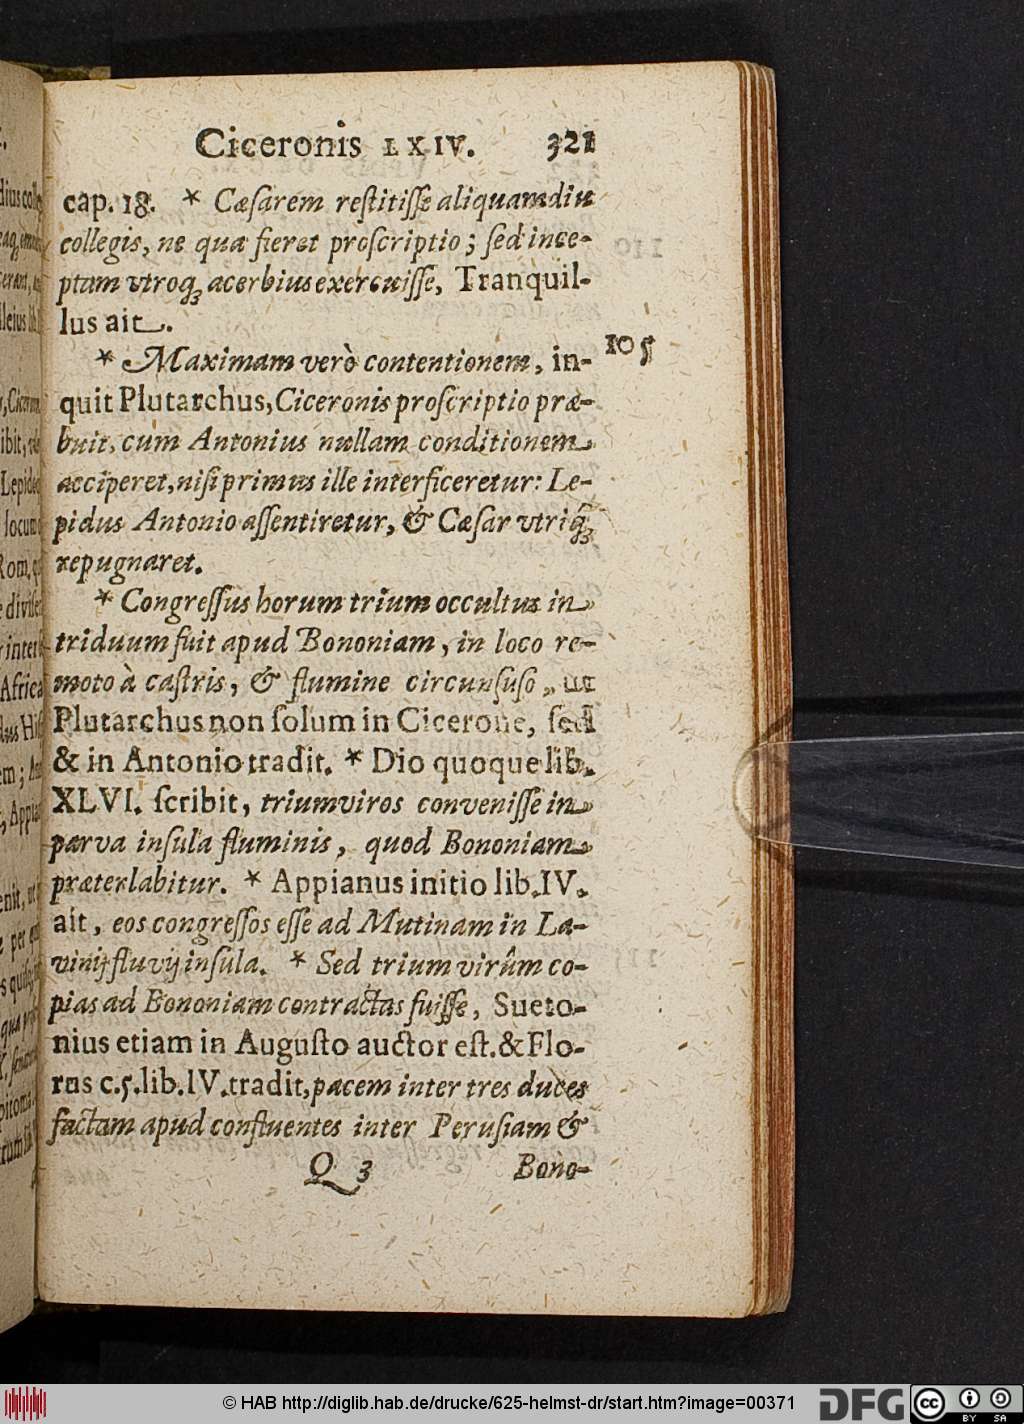 Ciceronis LXIV. 321
cap. 18. * Cæsarem restitisse aliquamdiu
collegis, ne qua fieret proscriptio; sed ince-
ptam vtroq; acerbius exercuisse, Tranquil-
lus ait.
* Maximam verò contentionem, in- 105
quit Plutarchus, Ciceronis proscriptio præ-
buit, cum Antonius nullam conditionem
acciperet, nisi primus ille interficeretur: Le-
pidus Antonio assentiretur, & Cæsar vtriq;
repugnaret.
* Congressus horum trium occultus in
triduum fuit apud Bononiam, in loco re-
moto à castris, & flumine circunfuso, ut
Plutarchus non solum in Cicerone, sed
& in Antonio tradit. * Dio quoque lib.
XLVI. scribit, triumviros convenisse in
parva insula fluminis, quod Bononiam
præterlabitur. * Appianus initio lib. IV.
ait, eos congressos esse ad Mutinam in La-
vinij fluvij insula. * Sed trium virûm co-
pias ad Bononiam contractas fuisse, Sueto-
nius etiam in Augusto auctor est. & Flo-
rus c. 5. lib. IV. tradit, pacem inter tres duces
factam apud confluentes inter Perusiam &
Q 3 Bono-
© HAB http://diglib.hab.de/drucke/625-helmst-dr/start.htm?image=00371
DFG
cc BY SA